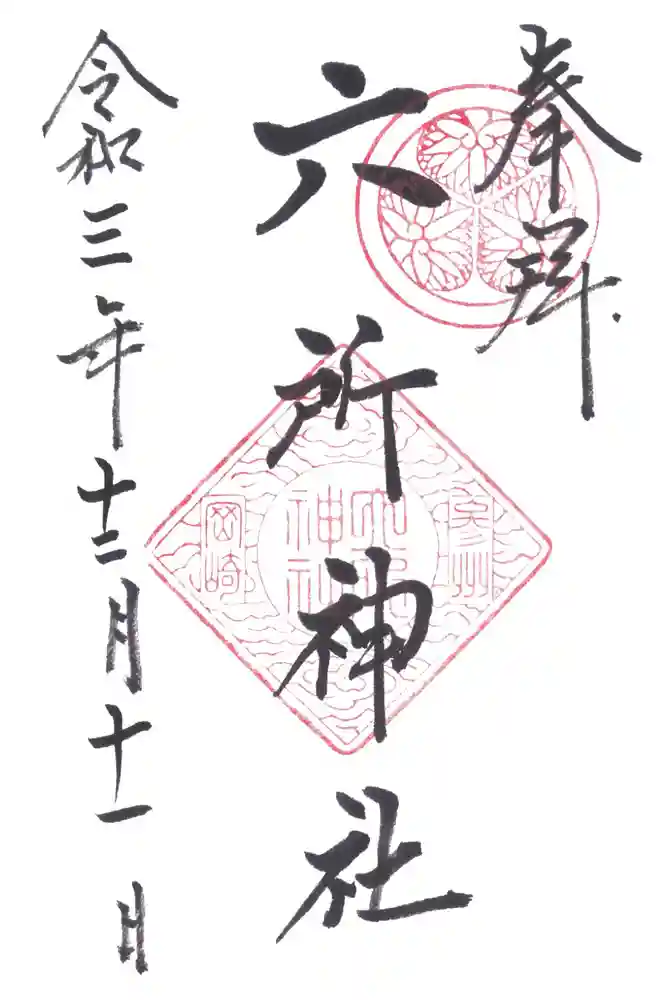 奉拝
六所神社
令和三年十二月十一日
参州
六所
神社
岡崎